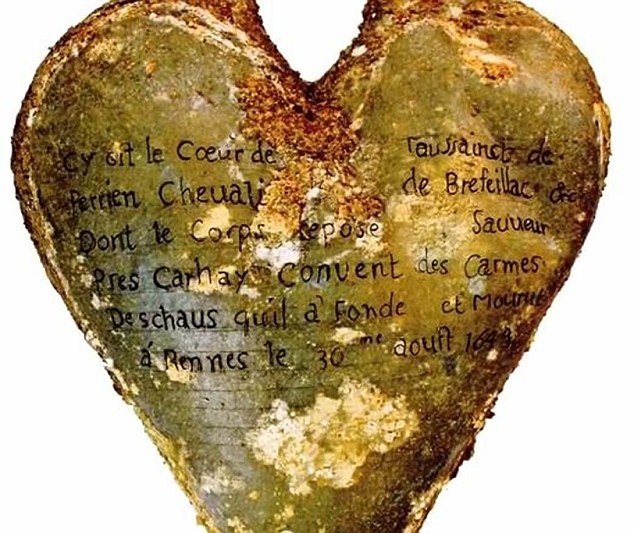 Cy git le Cœur de Toussainct de
Perrien Cheuali de Brefeillac &c
Dont le Corps repose Sauueur
Pres Carhay Convent des Carmes
Deschaus quil a' Fonde et Mourut
á Rennes le 30me aoust